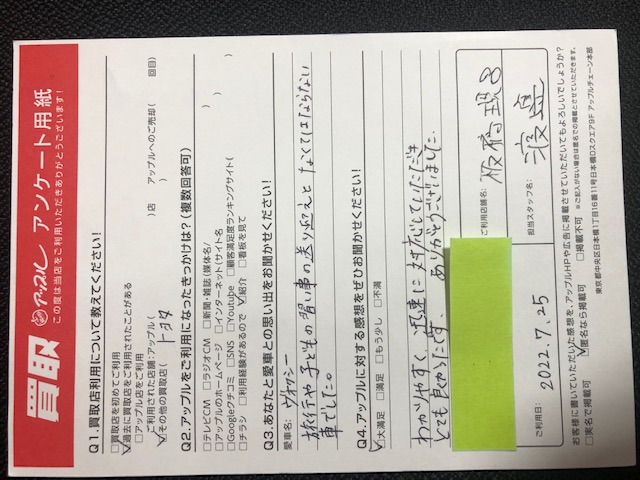 買取 アップル アンケート用紙
この度は当店をご利用いただきありがとうございます!
Q1.買取店利用について教えてください!
□買取店を初めてご利用
☑過去に買取店をご利用されたことがある
□アップル店をご利用
ご利用された店舗:アップル( )店 アップルへのご売却( 回目)
☑その他の買取店( トヨタ )
Q2.アップルをご利用になったきっかけは?(複数回答可)
□テレビCM □ラジオCM □新聞・雑誌(媒体名/ )
□アップルのホームページ □インターネット(サイト名 )
□Googleクチコミ □SNS □Youtube □顧客満足度ランキングサイト( )
□チラシ □利用経験があるので ☑紹介 □看板を見て
Q3.あなたと愛車との思い出をお聞かせください!
愛車名: ヴォクシー
旅行や子どもの習い事の送り迎えとなくてはならない
車でした。
Q4.アップルに対する感想をぜひお聞かせください!
☑大満足 □満足 □もう少し □不満
わかりやすく、迅速に対応していただき
とても良かったです。ありがとうございました。
ご利用店舗名:
担当スタッフ名: 渡邉
ご利用日: 2022.7.25
お客様に書いていただいた感想を、アップルHPや広告に掲載させていただいてもよろしいでしょうか?
□実名で掲載可 ☑匿名なら掲載可 □掲載不可 ※ご記入がない場合は匿名での掲載とさせていただきます。
東京都中央区日本橋1丁目16番11号日本橋Dスクエア9F アップルチェーン本部